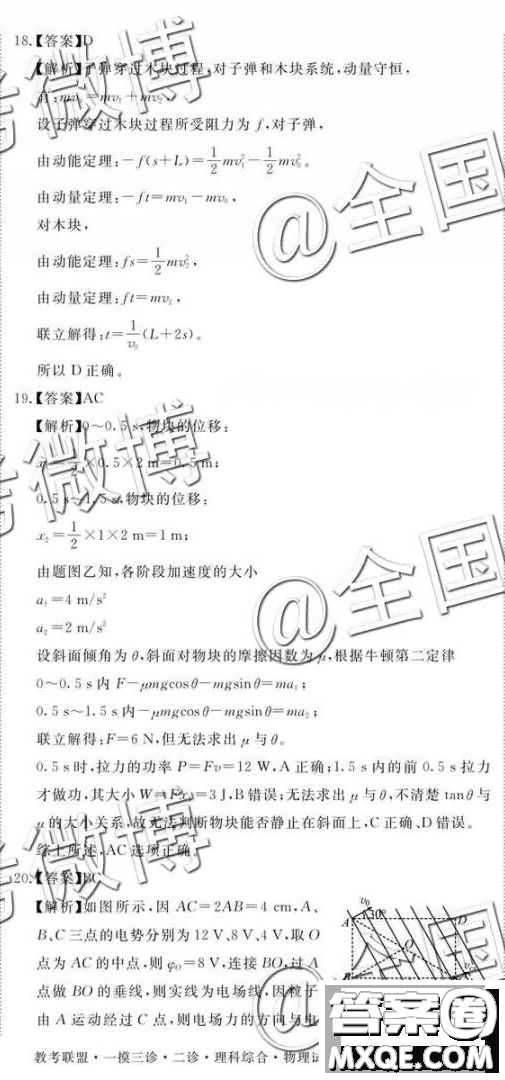 18.【答案】D
【解析】子弹穿过木块过程,对子弹和木块系统,动量守恒,
有:mv₀=mv₁+mv₂,
设子弹穿过木块过程所受阻力为f,对子弹,
由动能定理:-f(s+L)=1/2mv₁²-1/2mv₀²。
由动量定理:-ft=mv₁-mv₀,
对木块,
由动能定理:fs=1/2mv₂²,
由动量定理:ft=mv₂,
联立解得:t=1/v₀(L+2s)。
所以D正确。
19.【答案】AC
【解析】0~0.5 s,物块的位移:
x₁=1/2×0.5×2 m=0.5 m;
0.5 s~1.5 s,物块的位移:
x₂=1/2×1×2 m=1 m;
由题图乙知,各阶段加速度的大小
a₁=4 m/s²
a₂=2 m/s²
设斜面倾角为θ,斜面对物块的摩擦因数为μ,根据牛顿第二定律
0~0.5 s内 F-μmgcosθ-mgsinθ=ma₁;
0.5 s~1.5 s内-μmgcosθ-mgsinθ=ma₂;
联立解得:F=6 N,但无法求出μ与θ。
0.5 s时,拉力的功率P=Fv=12 W,A正确;1.5 s内的前0.5 s拉力
才做功,其大小W=Fx₁=3 J,B错误;无法求出μ与θ,不清楚tanθ与
μ的大小关系,故无法判断物块能否静止在斜面上,C正确、D错误。
综上所述,AC选项正确。
20.【答案】BC
【解析】如图所示,因AC=2AB=4 cm,A、
B、C三点的电势分别为12 V、8 V、4 V,取O
点为AC的中点,则φ_O=8 V,连接BO,过A
点做BO的垂线,则实线为电场线,因粒子
由A运动经过C点,则电场力的方向与电
v₀
30°
A
D
O
B
教考联盟·一摸三诊·二诊·理科综合·物理试
考微博
@全国
考微博
@全国
考微博
@
答案圈
MXQE.COM